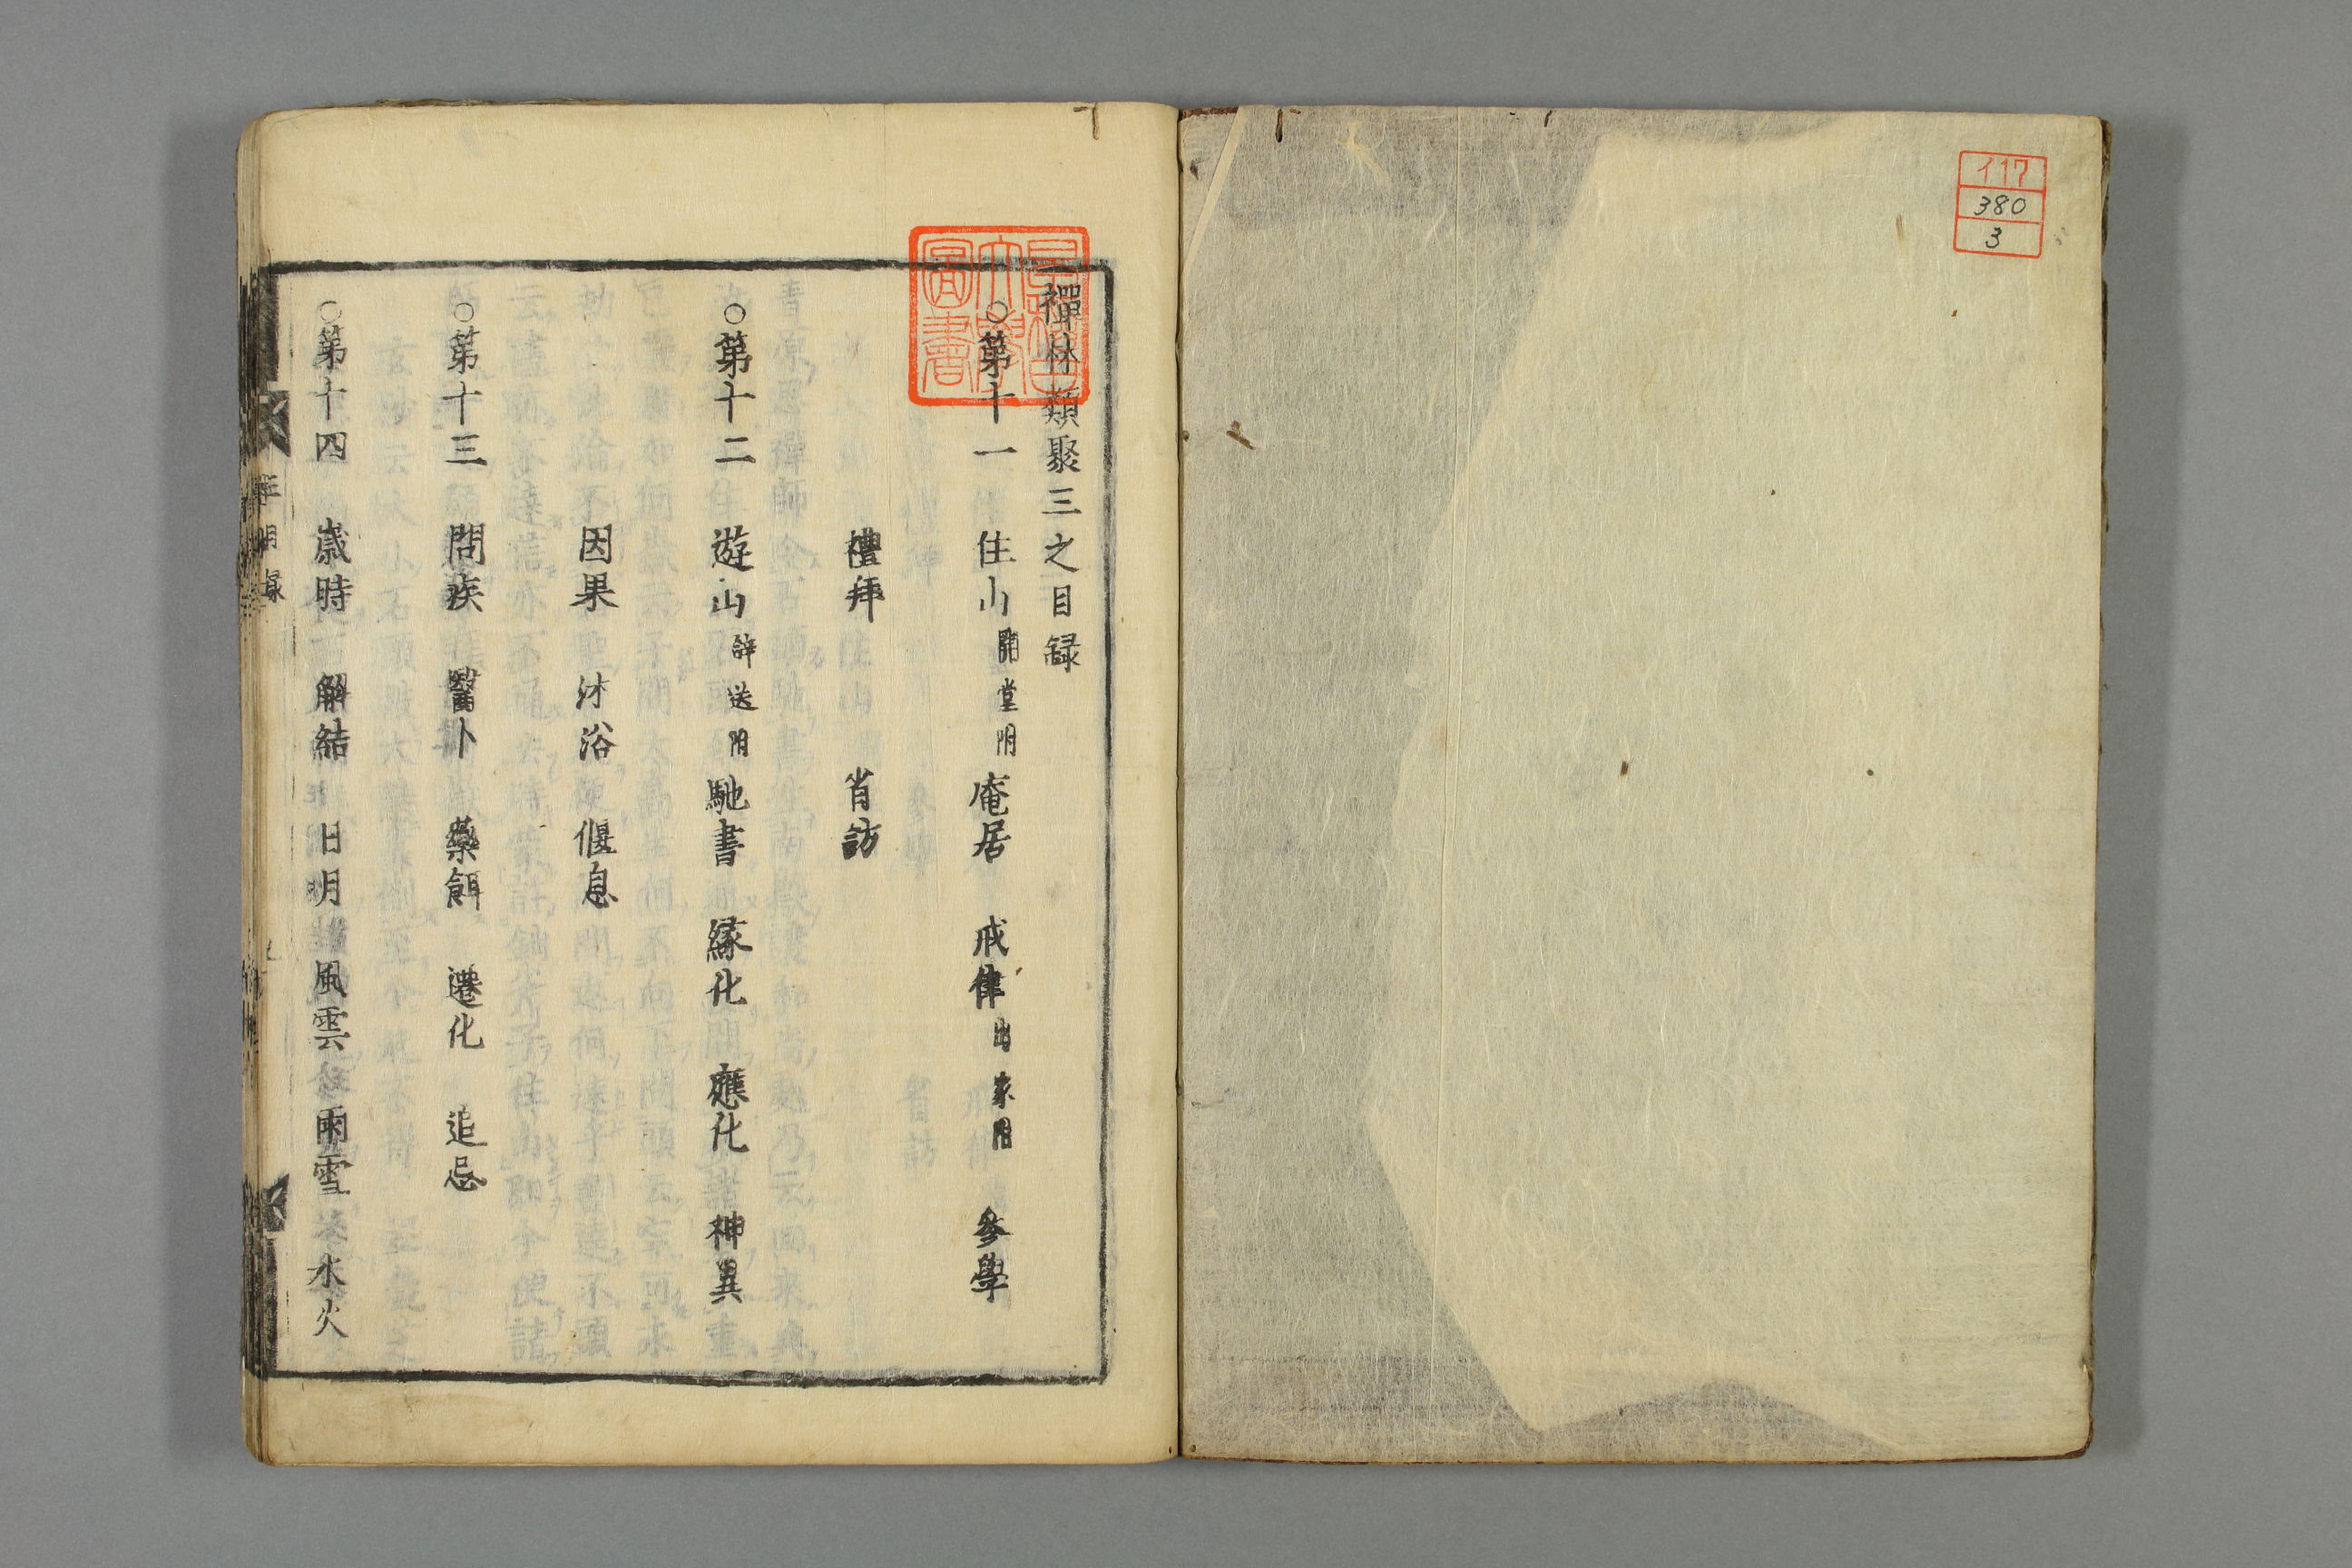 イ17
380
3
禪林類聚三之目録
○第十一 住山 開堂附 庵居 戒律 出家附 参學
禮拜 省訪
○第十二 遊山 辞送附 馳書 縁化 應化 神異
因果 沐浴 偃息
○第十三 問疾 醫卜 藥餌 遷化 追忌
○第十四 歳時 解結 日月 風雲 雨雪 水火